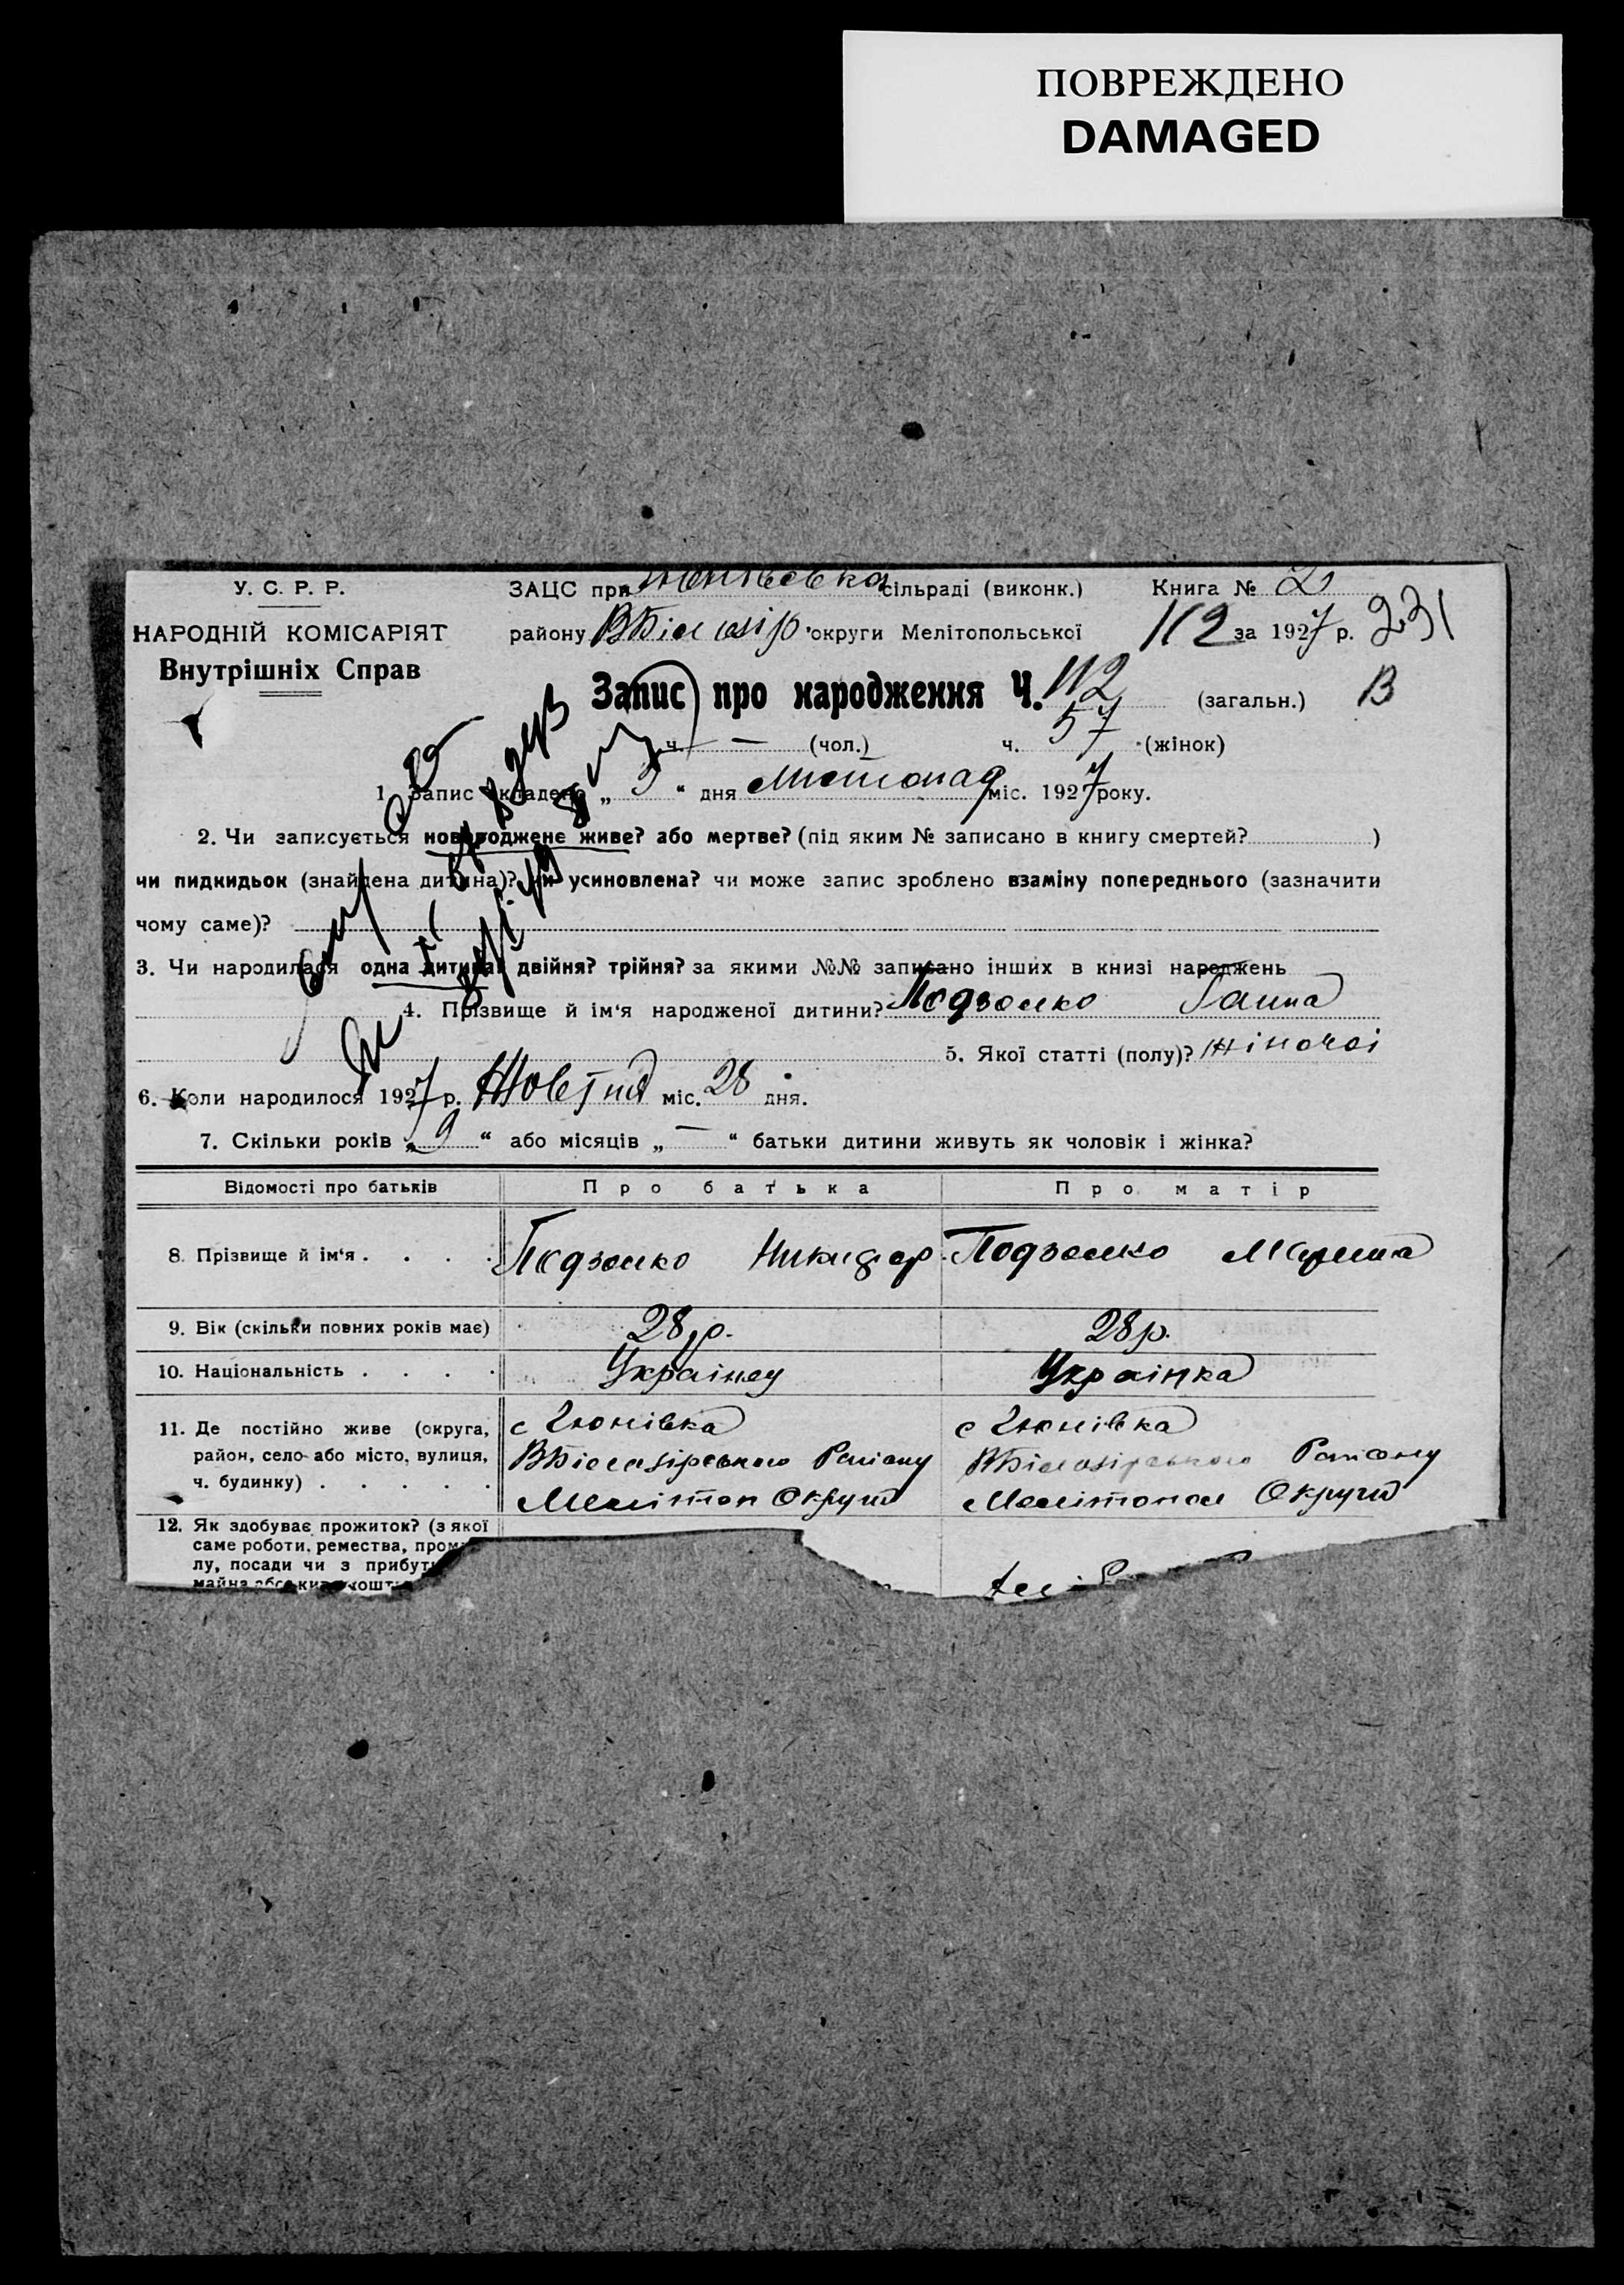 ПОВРЕЖДЕНО
DAMAGED
У. С. Р. Р.
НАРОДНІЙ КОМІСАРІЯТ
Внутрішніх Справ
ЗАЦС при сільраді (виконк.)
району ВБілозір. округи Мелітопольської
Книга № 2
112 за 1927 р. 231
Запис про народження Ч. 112 (загальн.) В
ч. — (чол.) ч. 57 (жінок)
1. Запис складено „ 3 “ дня Листопад міс. 1927 року.
2. Чи записується новороджене живе? або мертве? (під яким № записано в книгу смертей? )
чи пидкидьок (знайдена дитина)? чи усиновлена? чи може запис зроблено взаміну попереднього (зазначити
чому саме)?
3. Чи народилася одна дитина? двійня? трійня? за якими №№ записано інших в книзі народжень
4. Прізвище й ім‘я народженої дитини? Подзолко Ганна
5. Якої статті (полу)? жіночоі
6. Коли народилося 1927 р. Жовтня міс. 28 дня.
7. Скільки років „ 9 “ або місяців „ — “ батьки дитини живуть як чоловік і жінка?
Відомості про батьків Про батька Про матір
8. Прізвище й ім‘я . . . . Подзолко Никифор Подзолко Марина
9. Вік (скільки повних років має) 28 р. 28 р.
10. Національність . . . . Украінец Украінка
11. Де постійно живе (округа, район, село або місто, вулиця, ч. будинку) . . . . .
с Тюнівка
ВБілозірського Району
Мелітоп Округи
с Тюнівка
ВБілозірського Району
Мелітопол Округи
12. Як здобуває прожиток? (з якої
саме роботи, ремества, пром
лу, посади чи з прибут
майна